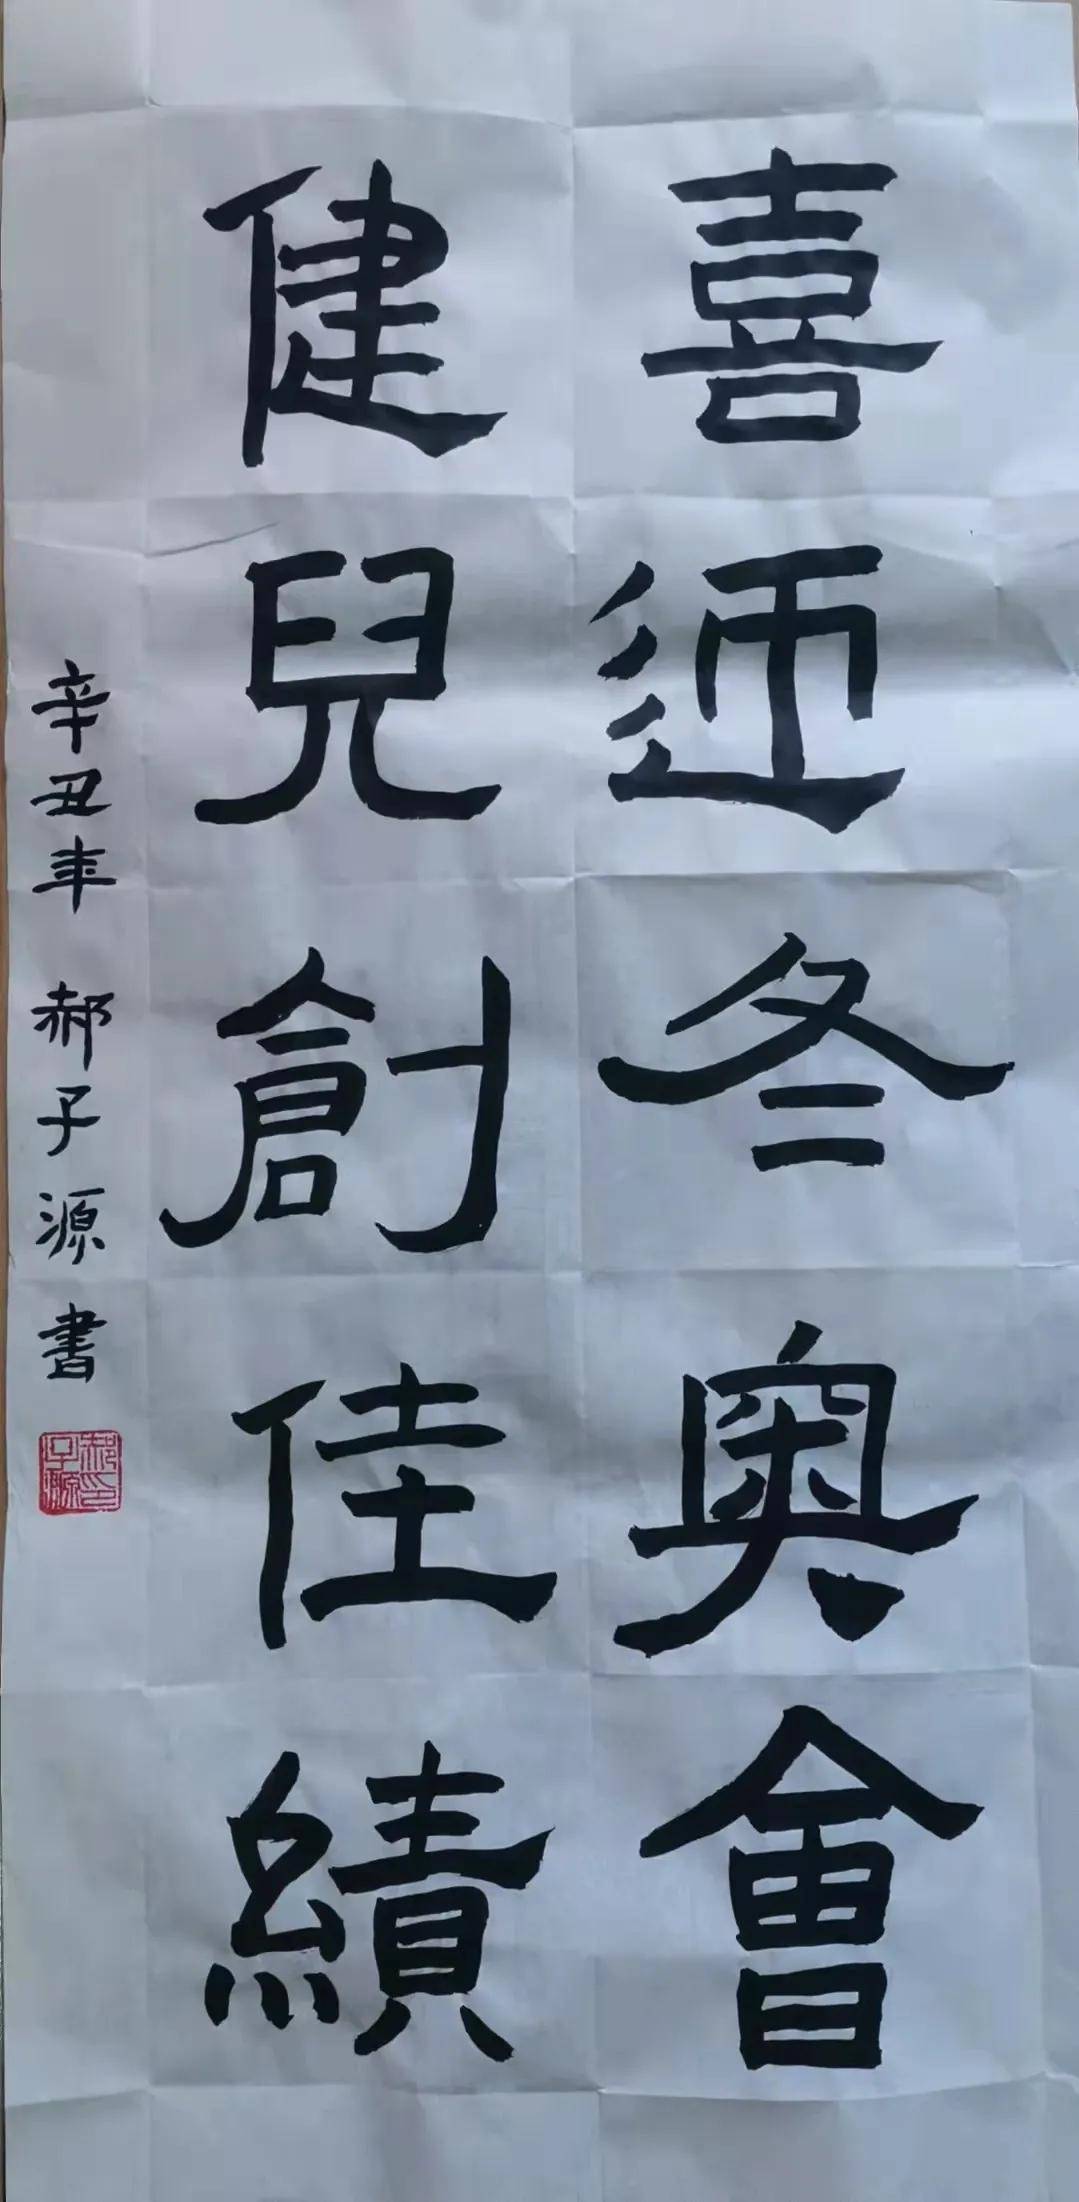 喜迎冬奧會
健兒創佳績
辛丑年 郝子源書
郝子源印